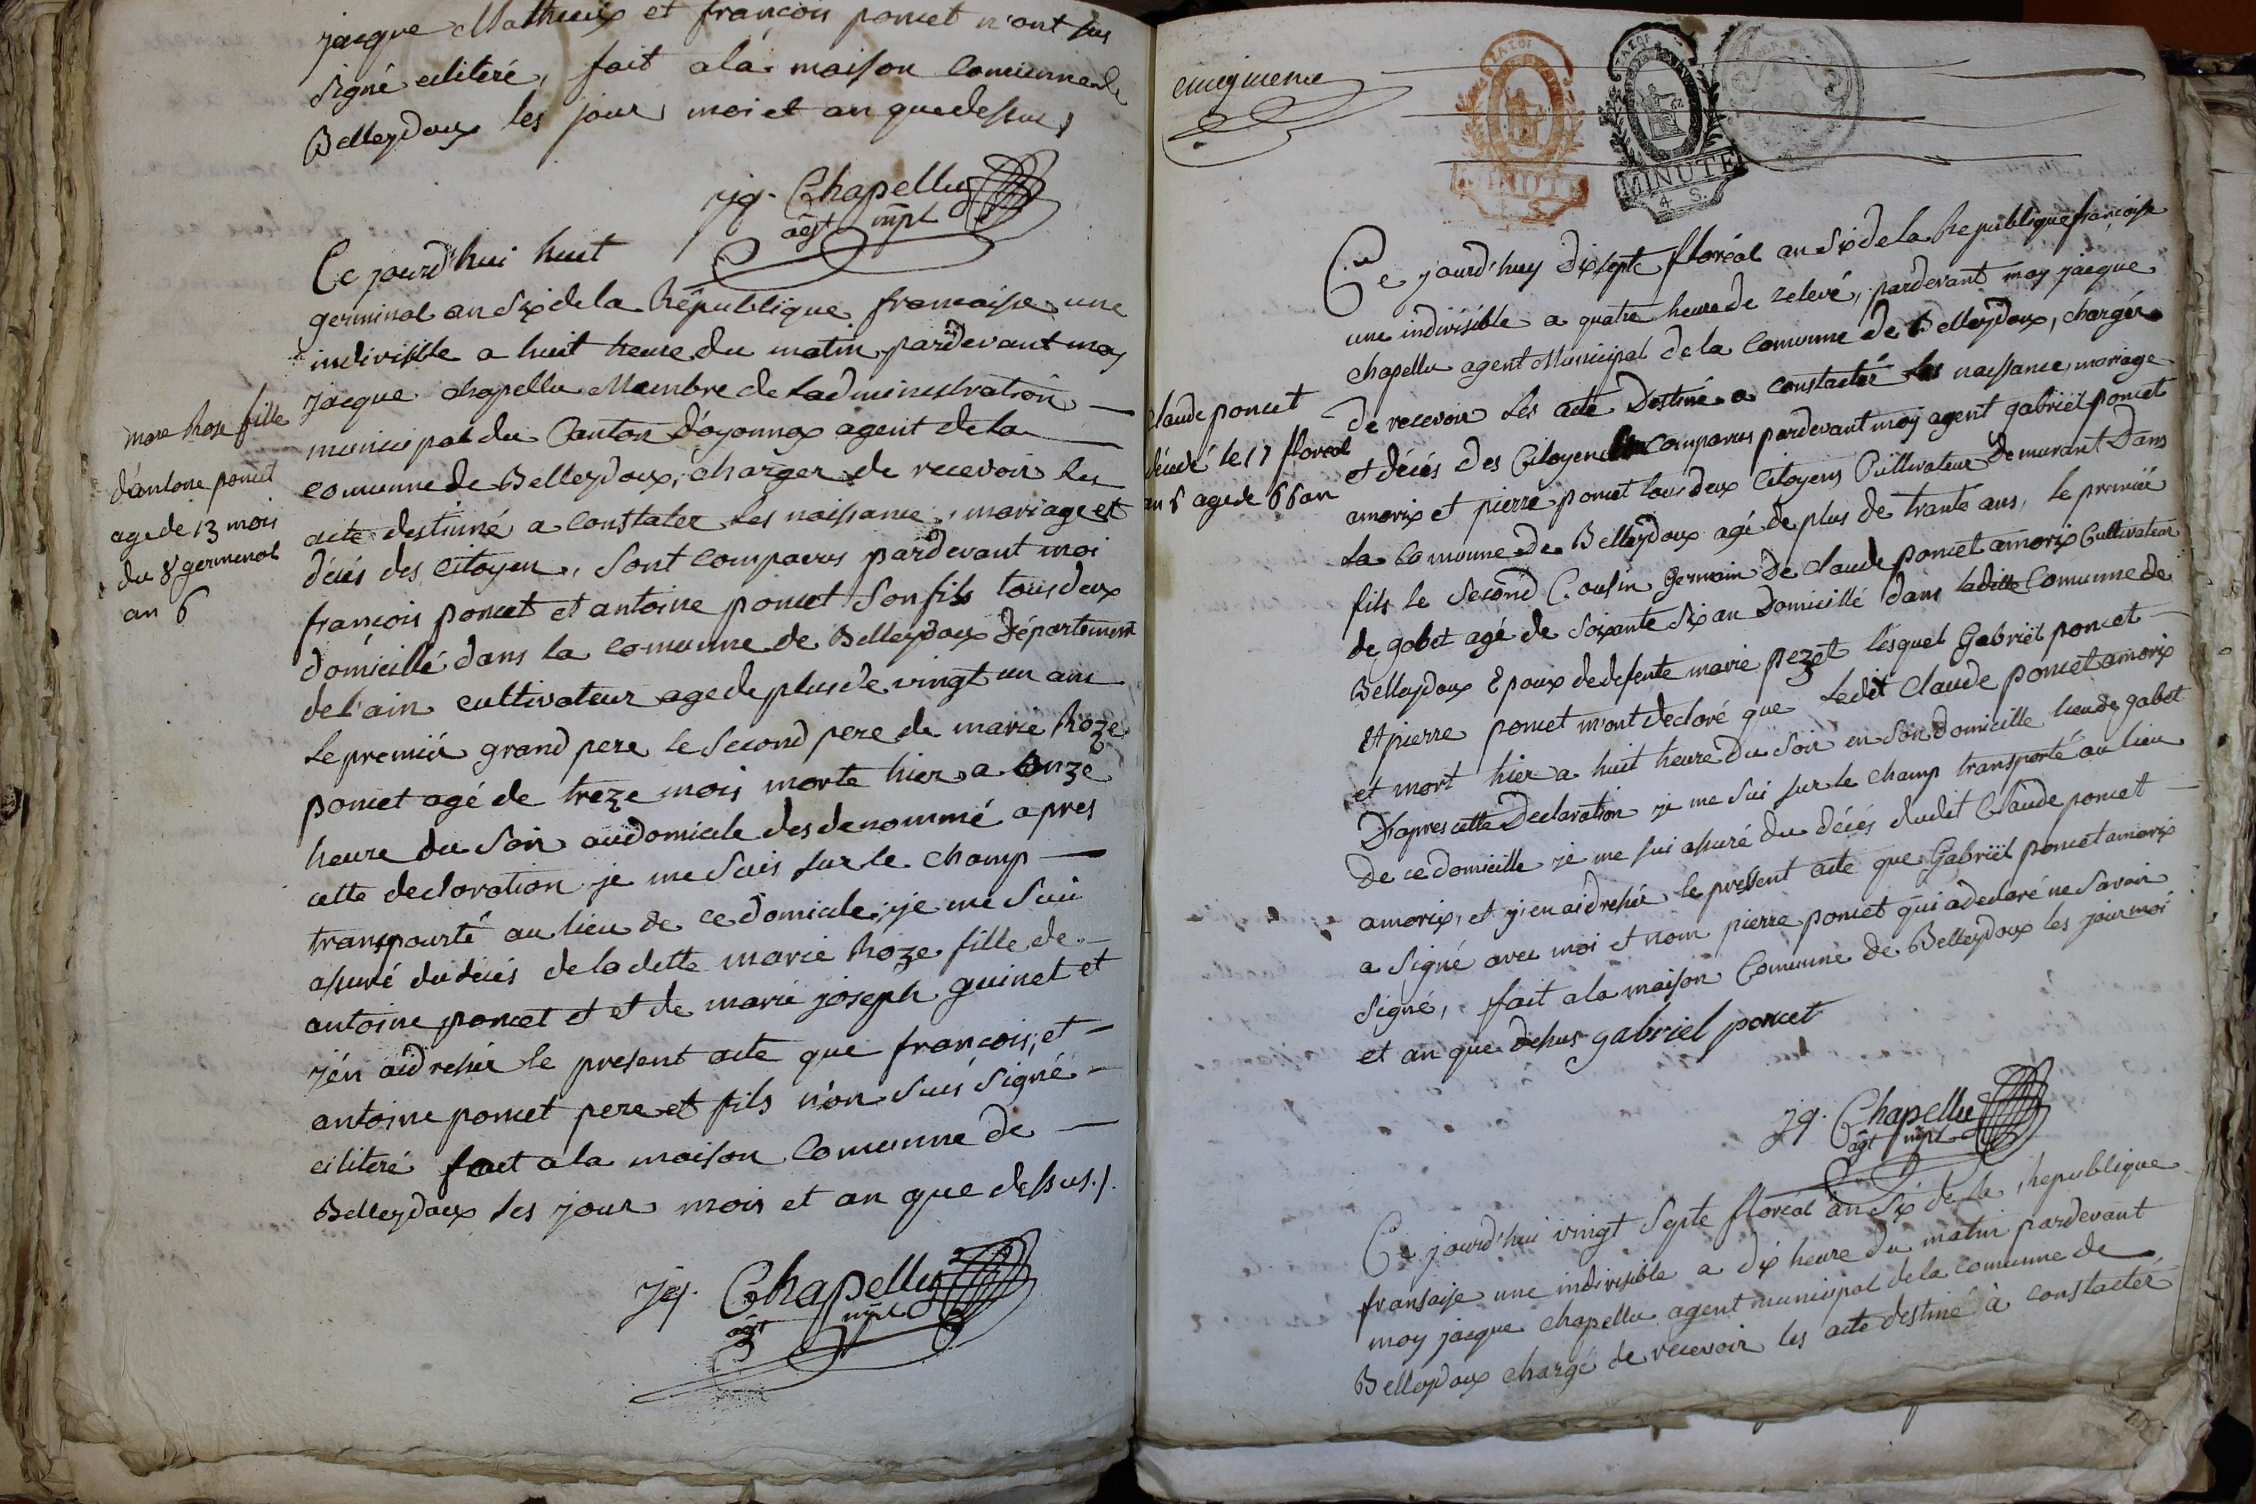 jacque Mathieux et françois poncet n'ont sus
signé eiliteré, fait a la maison Comunne de
Belleydoux les jour, moi et an que dessus
jq. Chapellu
agt mpl
Ce jourd'hui huit
germinal an Six de la République francaise une
indivisible a huit heure du matin, pardevant moy
jacque chapellu Membre de Ladministration
municipal du Canton d'oyonnax agent de la
comunne de Belleydoux, charger de recevoir les
acte destinné a constater les naissance, mariage et
décés des Citoyen, sont comparus pardevant moi
françois poncet et antoine poncet son fils tous deux
domicillé dans la comunne de Belleydoux département
de l'ain cultivateur age de plus de vingt un ans
le premiér grand pere le second pere de marie Roze
poncet agé de treze mois morte hier a onze
heure du soir audomicile des denommé apres
cette decloration je me suis sur le champ
transpourté au lieu de ce domicile, je me suis
assuré du décés de ladette marie Roze fille de
antoine poncet et et de marie joseph guinet et
j'en aidressér le present acte que françois, et
antoine poncet pere et fils n'on sus signé
eiliteré fait a la maison comunne de
Belleydoux les jour mois et an que dessus./.
jq. Chapellu
agt mpl
marie Rose fille
d'antone poncet
age de 13 mois
du 8 germinal
an 6
TIMBRE
MINUTE
4 S.
MINUTE
4 S.
Ce jourd'huy dixsepte floréal an Six de la Republique françoise
une indivisible a quatre heure de relevé, pardevant moy jacque
chapellu agent Municipal de la Comunne de Belleydoux, chargér
de recevoir les acte Destiné a constacter les naissance, mariage
et décés des Citoyen comparus pardevant moy agent gabriël poncet
amorix et pierre poncet tous deux Citoyens Cultivateur Demurant Dans
La Comunne de Belleydoux agé de plus de trante ans, le premiér
fils le second Cousin Germain de Claude poncet amorix Cultivateur
de gobet agé de soixante six an Domicillé dans ladette Comunne de
Belleydoux Epoux de defente marie pezet lesquel Gabriël poncet
Et pierre poncet m'ont declaré que Ledit Claude poncet amorix
et mort hier a huit heure Du soir en son domicille lieu de gobet
D'apres cette Declaration je me sui sur le champ transporté au lieu
De ce domicille je me sui assuré du décés dudit Claude poncet
amorix, et j'en aidressér le present acte que Gabriël poncet amorix
a signé avec moi et nom pierre poncet qui a declaré ne savoir
signé, fait a la maison Comunne de Belleydoux les jour moi
et an que dessus gabriel poncet
jq. Chapellu
agt mpl
Claude poncet
décédé le 17 floreal
an 6 age de 66 an
Ce jourd'hui vingt septe floréal an Six de la Republique
fransaise une indivisible a dix heure du matin pardevant
moy jacque chapellu agent municipal de la comunne de
Belleydoux chargé de recevoir les acte destiné à constacter